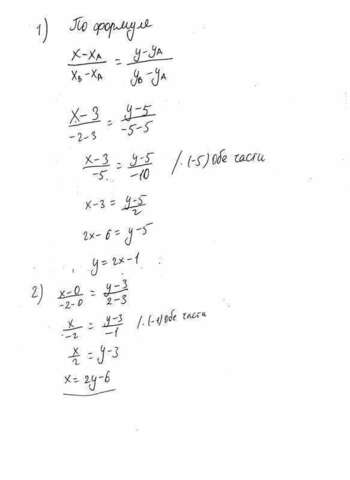 1) По формуле
(x-xA)/(xB-xA) = (y-yA)/(yB-yA)
(x-3)/(-2-3) = (y-5)/(-5-5)
(x-3)/(-5) = (y-5)/(-10) /·(-5) Обе части
x-3 = (y-5)/2
2x-6 = y-5
y = 2x-1
2) (x-0)/(-2-0) = (y-3)/(2-3)
x/(-2) = (y-3)/(-1) /·(-1) Обе части
x/2 = y-3
x = 2y-6